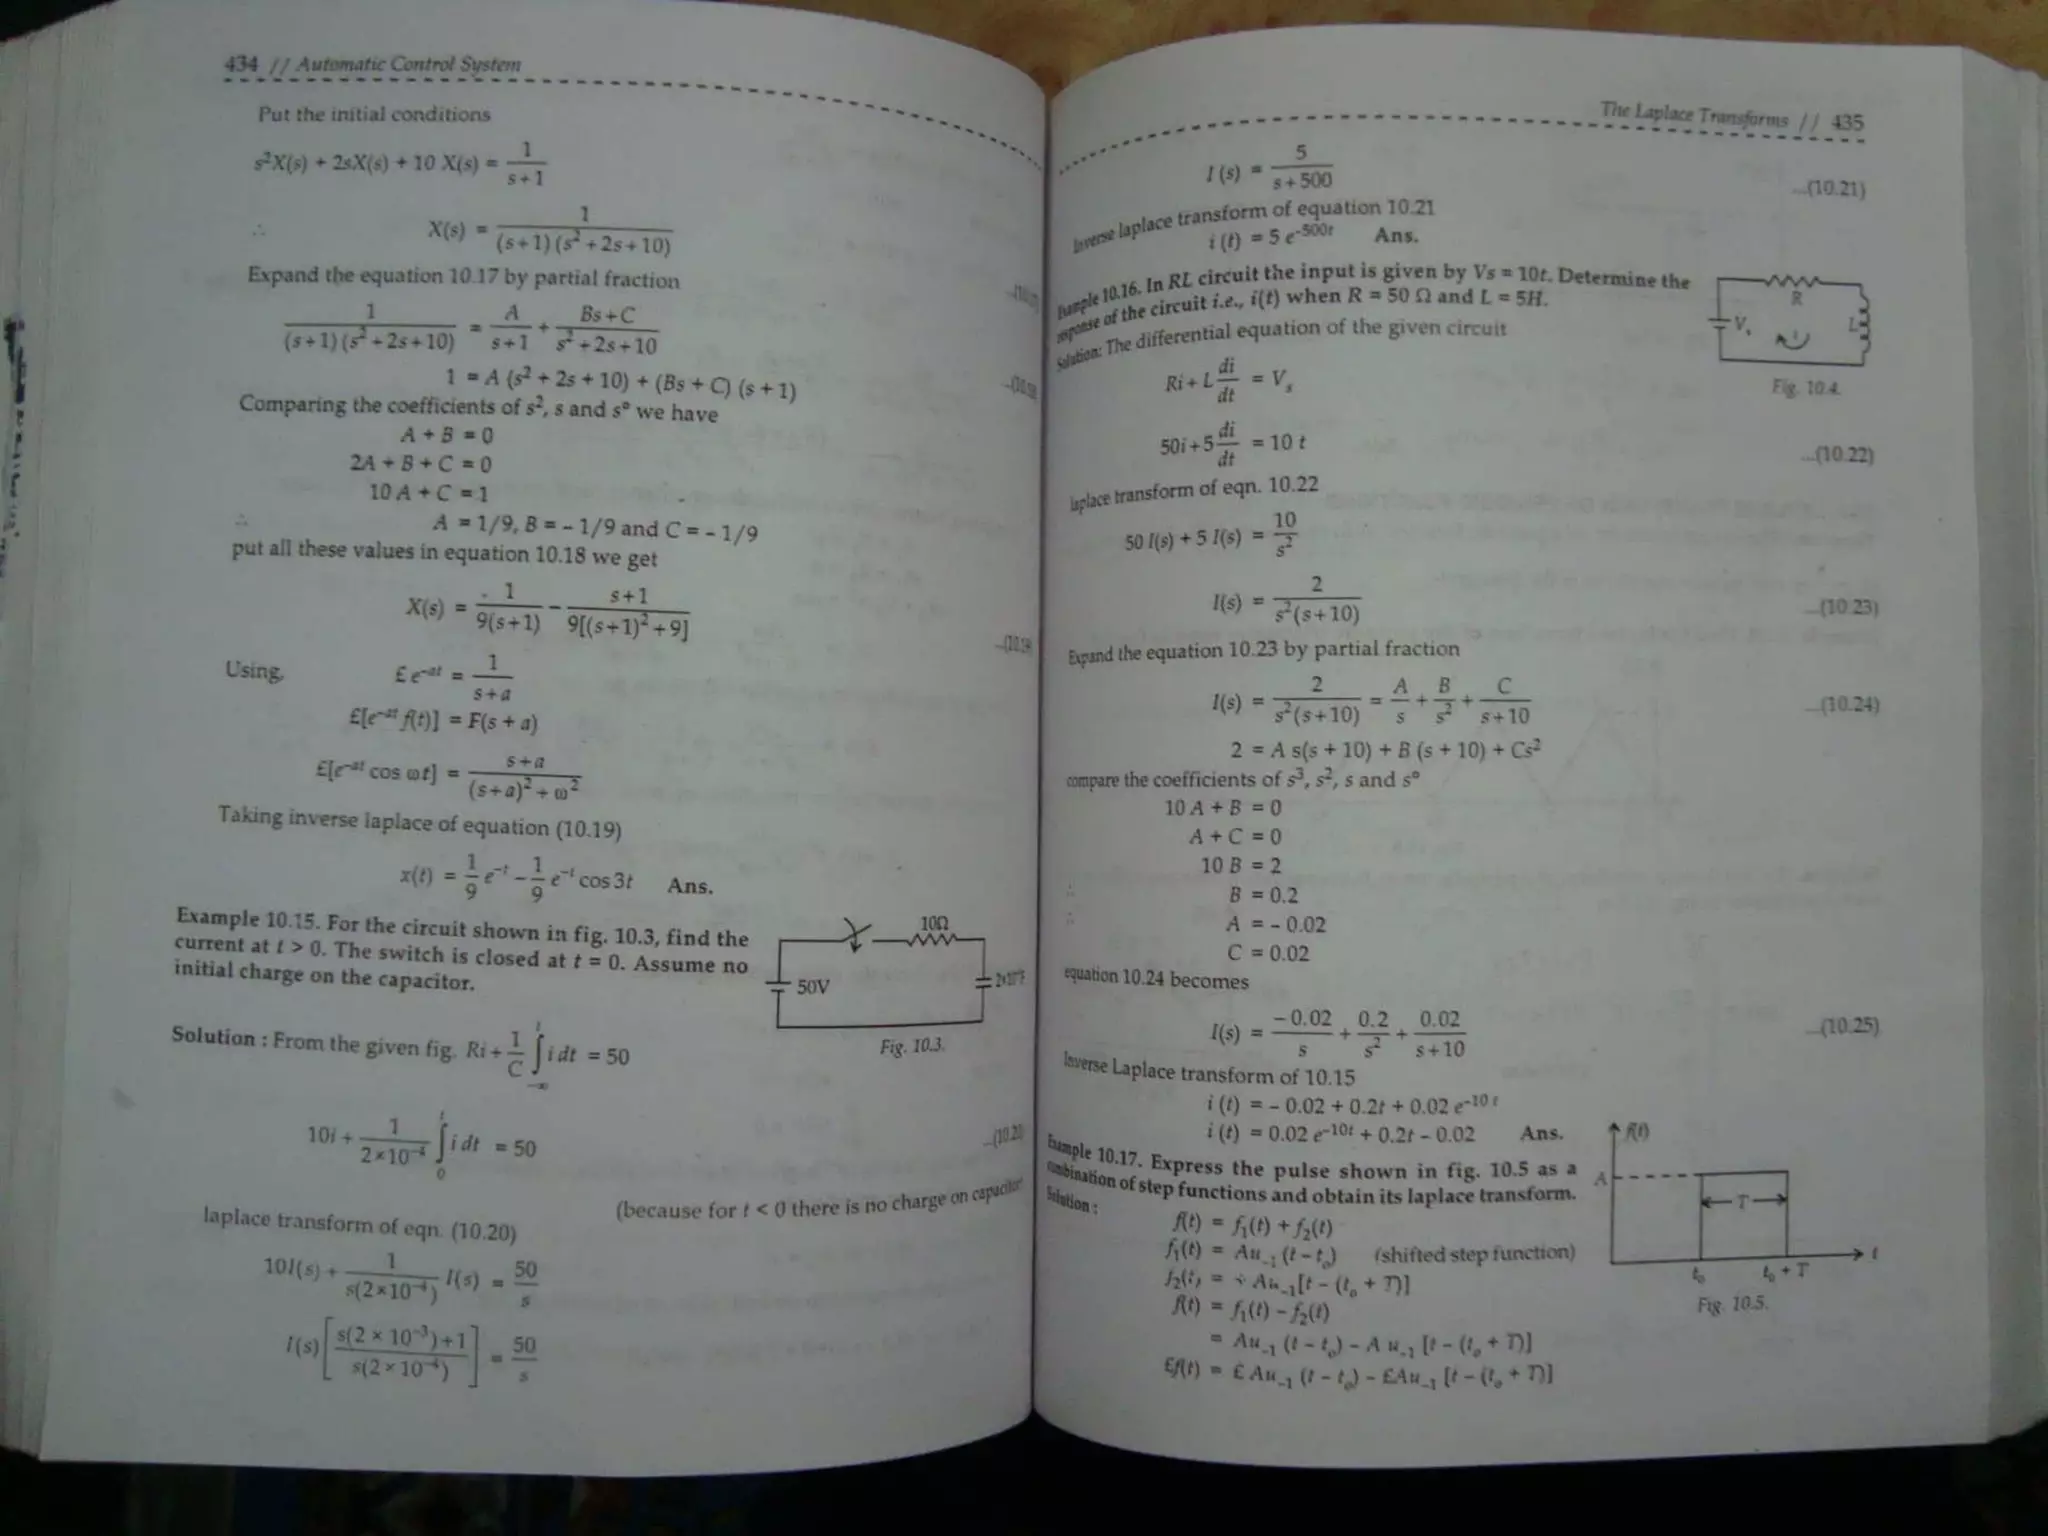 434 // Automatic Control System
Put the initial conditions
s²X(s) + 2sX(s) + 10 X(s) = 1/(s+1)
∴ X(s) = 1/((s+1)(s²+2s+10))
Expand the equation 10.17 by partial fraction
1/((s+1)(s²+2s+10)) = A/(s+1) + (Bs+C)/(s²+2s+10)
1 = A (s² + 2s + 10) + (Bs + C) (s + 1)
Comparing the coefficients of s², s and s° we have
A + B = 0
2A + B + C = 0
10 A + C = 1
∴ A = 1/9, B = - 1/9 and C = - 1/9
put all these values in equation 10.18 we get
X(s) = 1/(9(s+1)) − (s+1)/(9[(s+1)²+9])
...(10.19)
Using, £ e^(-at) = 1/(s+a)
£[e^(-at) f(t)] = F(s + a)
£[e^(-at) cos ωt] = (s+a)/((s+a)²+ω²)
Taking inverse laplace of equation (10.19)
x(t) = 1/9 e^(-t) − 1/9 e^(-t) cos3t Ans.
Example 10.15. For the circuit shown in fig. 10.3, find the
current at t > 0. The switch is closed at t = 0. Assume no
initial charge on the capacitor.
10Ω
50V
Fig. 10.3.
Solution : From the given fig. Ri + 1/C ∫_(-∞)^t i dt = 50
10i + 1/(2×10⁻⁴) ∫_0^t i dt = 50 ...(10.20)
(because for t < 0 there is no charge on capacitor
laplace transform of eqn. (10.20)
10I(s) + 1/(s(2×10⁻⁴)) I(s) = 50/s
I(s) [(s(2 × 10⁻³)+1)/(s(2×10⁻⁴))] = 50/s
The Laplace Transforms // 435
I (s) = 5/(s+500) ...(10.21)
Inverse laplace transform of equation 10.21
i (t) = 5 e^(-500t) Ans.
Example 10.16. In RL circuit the input is given by Vs = 10t. Determine the
response of the circuit i.e., i(t) when R = 50 Ω and L = 5H.
Solution: The differential equation of the given circuit
R
Vs
i
L
Fig. 10.4.
Ri + L di/dt = Vs
50i + 5 di/dt = 10 t ...(10.22)
laplace transform of eqn. 10.22
50 I(s) + 5 I(s) = 10/s²
I(s) = 2/(s²(s+10)) ...(10.23)
Expand the equation 10.23 by partial fraction
I(s) = 2/(s²(s+10)) = A/s + B/s² + C/(s+10) ...(10.24)
2 = A s(s + 10) + B (s + 10) + Cs²
compare the coefficients of s³, s², s and s°
10 A + B = 0
A + C = 0
10 B = 2
∴ B = 0.2
∴ A = - 0.02
C = 0.02
equation 10.24 becomes
I(s) = −0.02/s + 0.2/s² + 0.02/(s+10) ...(10.25)
Inverse Laplace transform of 10.15
i (t) = - 0.02 + 0.2t + 0.02 e^(-10 t)
i (t) = 0.02 e^(-10t) + 0.2t - 0.02 Ans.
Example 10.17. Express the pulse shown in fig. 10.5 as a
combination of step functions and obtain its laplace transform.
Solution :
f(t) = f₁(t) + f₂(t)
f₁(t) = Au₋₁ (t - t₀) (shifted step function)
f₂(t) = Au₋₁[t - (t₀ + T)]
f(t) = f₁(t) - f₂(t)
= Au₋₁ (t - t₀) - A u₋₁ [t - (t₀ + T)]
£f(t) = £ Au₋₁ (t - t₀) - £Au₋₁ [t - (t₀ + T)]
f(t)
A
T
t₀
t₀ + T
t
Fig. 10.5.